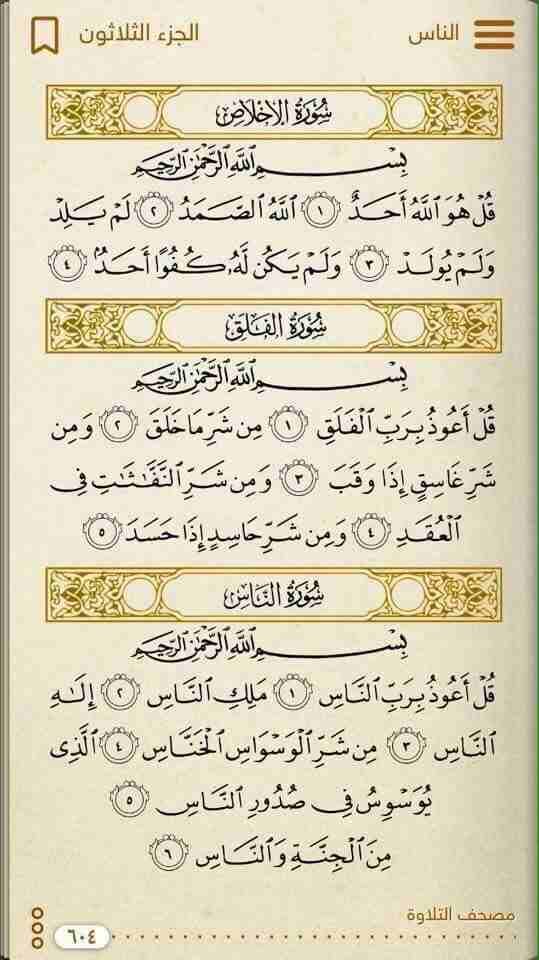 الناس
الجزء الثلاثون
سُورَةُ الإِخْلَاصِ
بِسْمِ اللَّهِ الرَّحْمَٰنِ الرَّحِيمِ
قُلْ هُوَ اللَّهُ أَحَدٌ ١ اللَّهُ الصَّمَدُ ٢ لَمْ يَلِدْ
وَلَمْ يُولَدْ ٣ وَلَمْ يَكُن لَّهُۥ كُفُوًا أَحَدٌۢ ٤
سُورَةُ الفَلَقِ
بِسْمِ اللَّهِ الرَّحْمَٰنِ الرَّحِيمِ
قُلْ أَعُوذُ بِرَبِّ الْفَلَقِ ١ مِن شَرِّ مَا خَلَقَ ٢ وَمِن
شَرِّ غَاسِقٍ إِذَا وَقَبَ ٣ وَمِن شَرِّ النَّفَّٰثَٰتِ فِى
الْعُقَدِ ٤ وَمِن شَرِّ حَاسِدٍ إِذَا حَسَدَ ٥
سُورَةُ النَّاسِ
بِسْمِ اللَّهِ الرَّحْمَٰنِ الرَّحِيمِ
قُلْ أَعُوذُ بِرَبِّ النَّاسِ ١ مَلِكِ النَّاسِ ٢ إِلَٰهِ
النَّاسِ ٣ مِن شَرِّ الْوَسْوَاسِ الْخَنَّاسِ ٤ الَّذِى
يُوَسْوِسُ فِى صُدُورِ النَّاسِ ٥
مِنَ الْجِنَّةِ وَالنَّاسِ ٦
مصحف التلاوة
٦٠٤